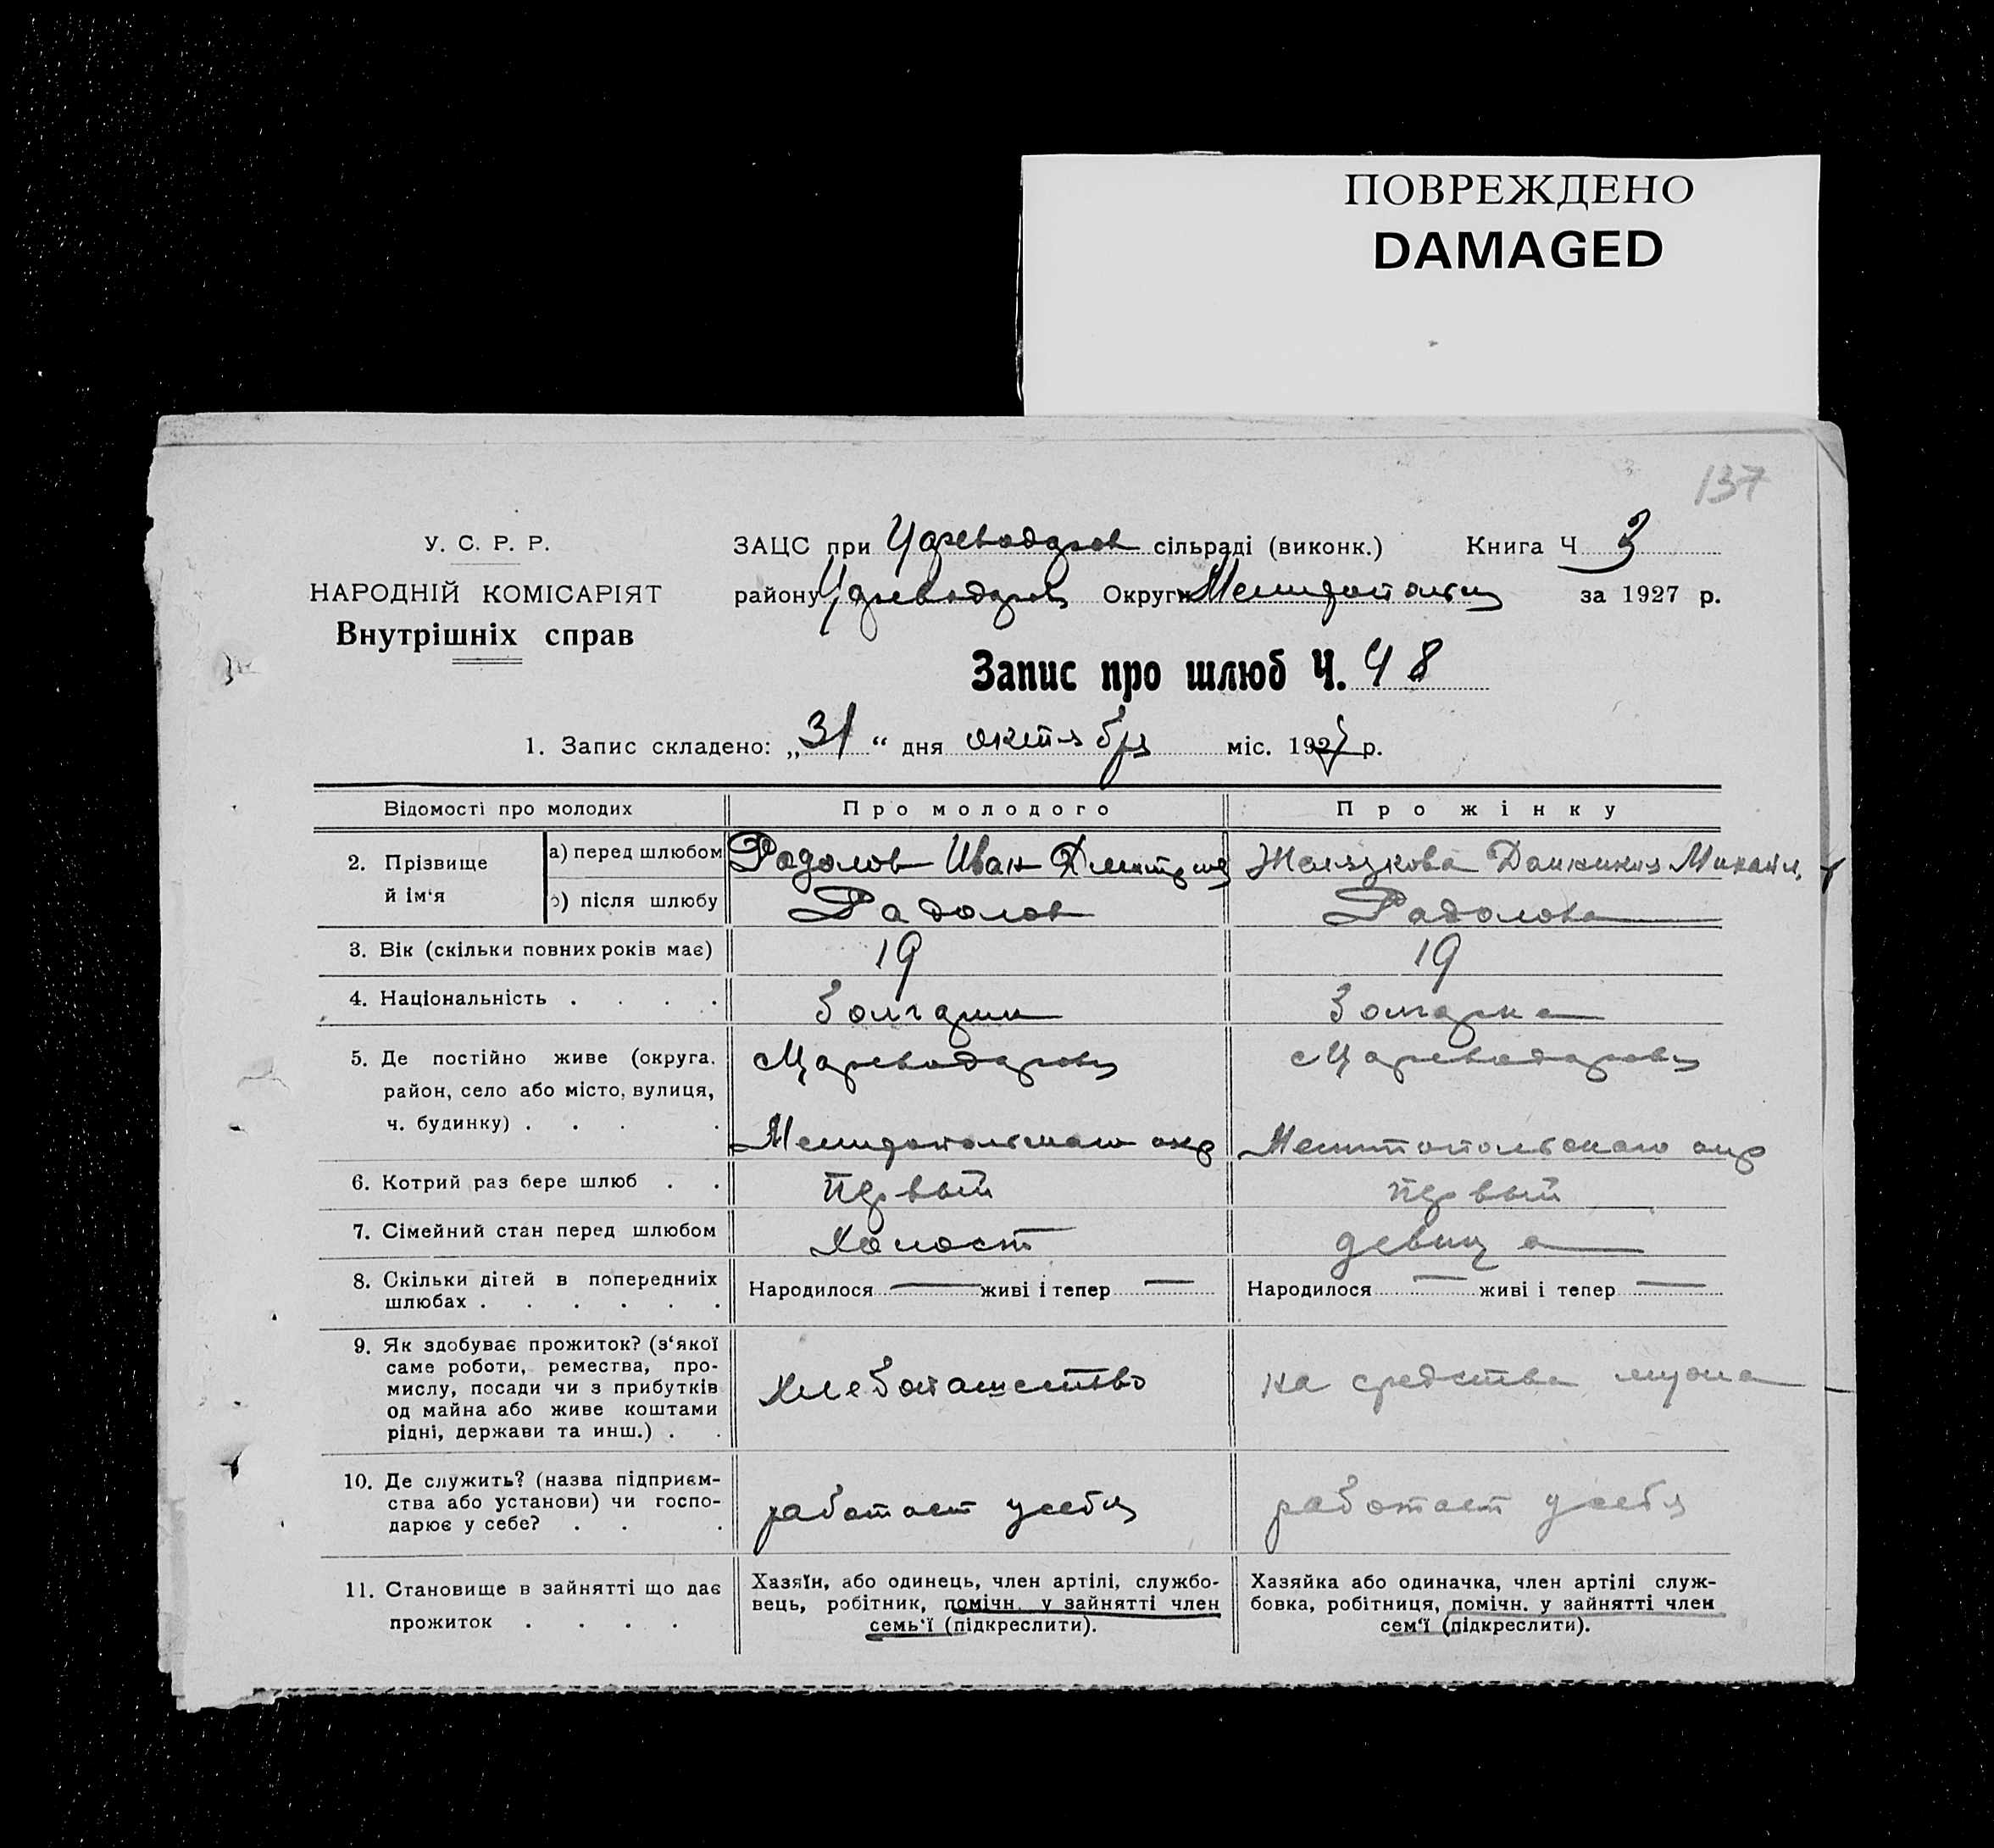 ПОВРЕЖДЕНО
DAMAGED
137
У. С. Р. Р.
НАРОДНІЙ КОМІСАРІЯТ
Внутрішніх справ
ЗАЦС при Цареводаров сільраді (виконк.) Книга Ч 3
району Цареводаров Округи Мелитопольск за 1927 р.
Запис про шлюб Ч. 48
1. Запис складено: „31“ дня октября міс. 1927 р.
Відомості про молодих Про молодого Про жінку
2. Прізвище й ім‘я
а) перед шлюбом Радолов Иван Дмитриев Желязкова Михайл.
б) після шлюбу Радолов Радолова
3. Вік (скільки повних років має) 19 19
4. Національність . . . . болгарин болгарка
5. Де постійно живе (округа. Цареводаровка Цареводаровка
район, село або місто, вулиця,
ч. будинку) . . . . Мелитопольского окр Мелитопольского окр
6. Котрий раз бере шлюб . . Первый первый
7. Сімейний стан перед шлюбом Холост девица
8. Скільки дітей в попередниіх Народилося — живі і тепер — Народилося — живі і тепер —
шлюбах . . . . . .
9. Як здобуває прожиток? (з‘якої
саме роботи, ремества, про-
мислу, посади чи з прибутків Хлебопашество на средства мужа
од майна або живе коштами
рідні, держави та инш.) . .
10. Де служить? (назва підприєм-
ства або установи) чи госпо- работает у себя работает у себя
дарює у себе? . . .
11. Становище в зайнятті що дає
прожиток . . . .
Хазяїн, або одинець, член артілі, службо-
вець, робітник, помічн. у зайнятті член
семь‘ї (підкреслити).
Хазяйка або одиначка, член артілі служ-
бовка, робітниця, помічн. у зайнятті член
сем‘ї (підкреслити).